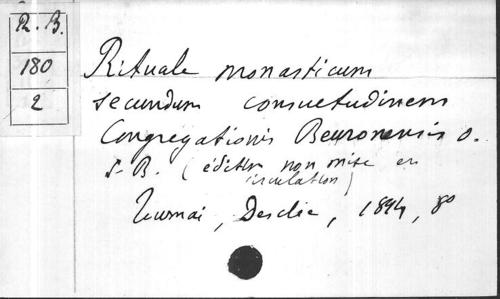 R. B.
180
2
Rituale monasticum
secundum consuetudinem
Congregationis Beuronensis O.
S. B. (édition non mise en
circulation)
Tournai, Desclée, 1894, 8°